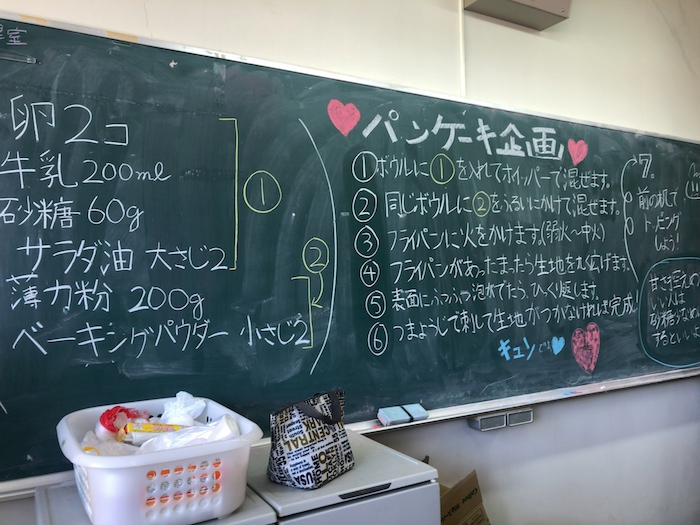 室
卵2コ
牛乳200ml
砂糖60g
サラダ油 大さじ2
薄力粉 200g
ベーキングパウダー 小さじ2
①
②
パンケーキ企画
①ボウルに①を入れてホイッパーで混ぜます。
②同じボウルに②をふるいにかけて混ぜます。
③フライパンに火をかけます。(弱火〜中火)
④フライパンがあったまったら生地を丸く広げます。
⑤表面にふつふつ泡がでたら、ひっくり返します。
⑥つまようじで刺して生地がつかなければ完成!
キュン
7.
前の机で
トッピング
しょう!
甘さ控えめ
いい人は
砂糖少なめ
するといいよ
CENTRAL
PARK
USA